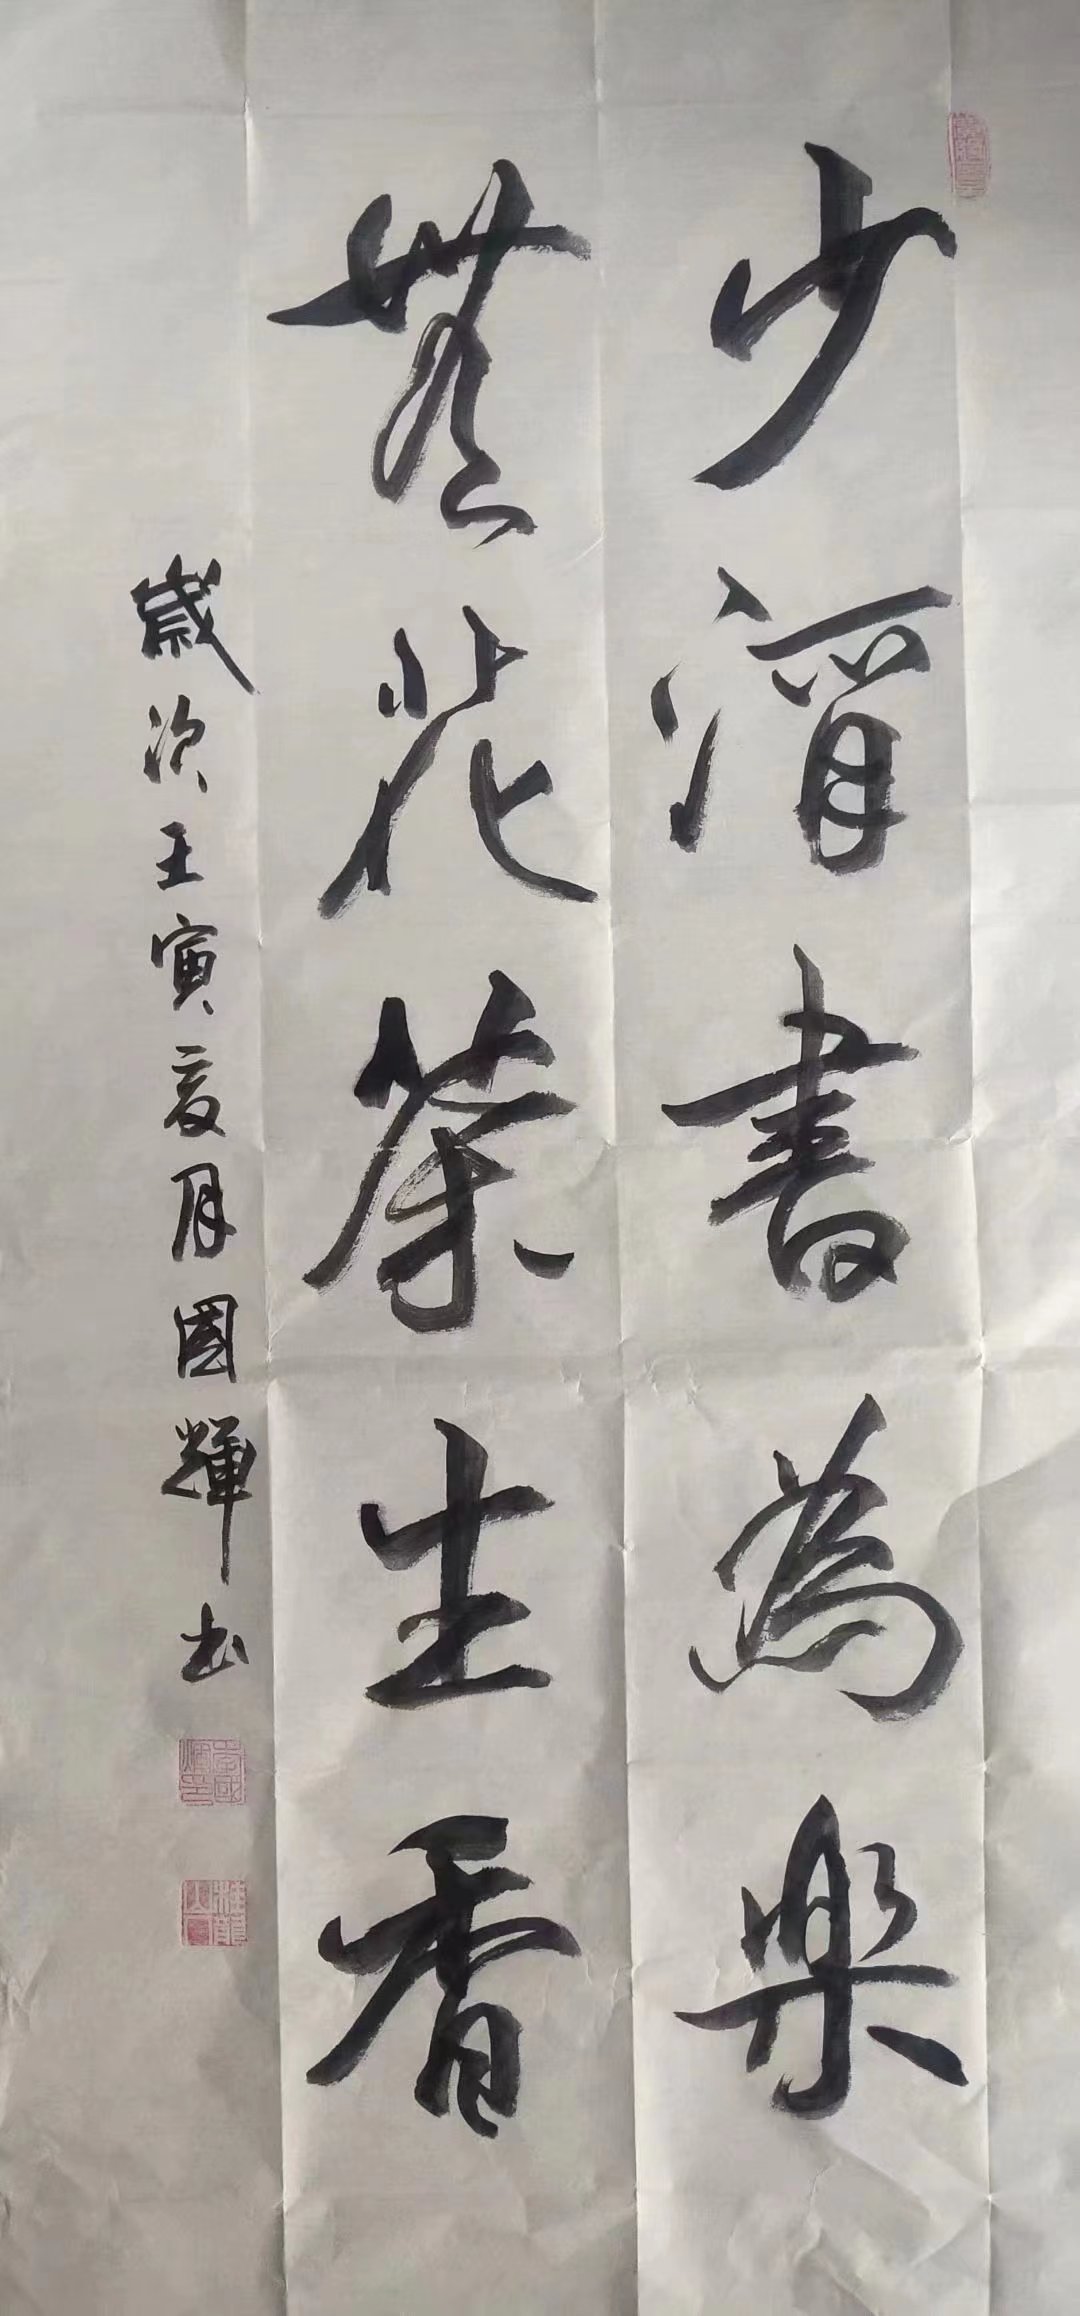 少酒書為樂
無花茶生香
歲次壬寅夏月國輝书